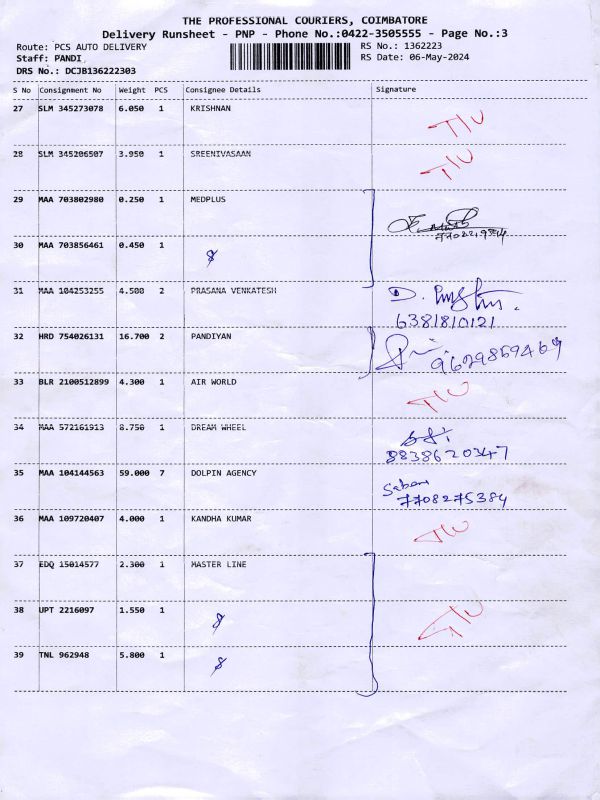 THE PROFESSIONAL COURIERS, COIMBATORE
Delivery Runsheet - PNP - Phone No.:0422-3505555 - Page No.:3
Route: PCS AUTO DELIVERY RS No.: 1362223
Staff: PANDI RS Date: 06-May-2024
DRS No.: DCJB136222303
S No Consignment No Weight PCS Consignee Details Signature
27 SLM 345273078 6.050 1 KRISHNAN T/U
28 SLM 345206507 3.950 1 SREENIVASAAN T/U
29 MAA 703802980 0.250 1 MEDPLUS
30 MAA 703856461 0.450 1
31 MAA 104253255 4.500 2 PRASANA VENKATESH D.
6381810121
32 HRD 754026131 16.700 2 PANDIYAN 9629859469
33 BLR 2100512899 4.300 1 AIR WORLD T/U
34 MAA 572161913 8.750 1 DREAM WHEEL
8838620347
35 MAA 104144563 59.000 7 DOLPIN AGENCY Sabari
7708275384
36 MAA 109720407 4.000 1 KANDHA KUMAR T/U
37 EDQ 15014577 2.300 1 MASTER LINE
38 UPT 2216097 1.550 1 T/U
39 TNL 962948 5.800 1